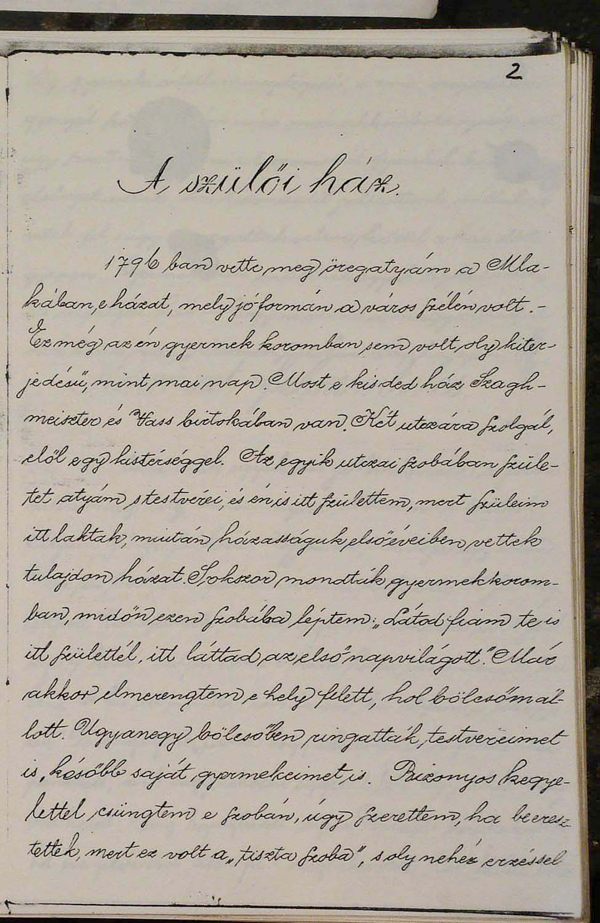 2
A szülői ház.
1796 ban vette meg öregatyám a Mla-
kában, e házat, mely jóformán a város szélén volt. -
Ez még az én gyermek koromban, sem volt, oly kiter-
jedésű, mint mai nap. Most e kisded ház Szagh-
meiszter és Vass birtokában van. Két utczára szolgál,
elől egy kis térséggel. Az egyik utczai szobában szüle-
tet atyám s testverei, és én is itt születtem, mert szüleim
itt laktak, miután házasságuk első éveiben vettek
tulajdon házat. Sokszor mondták gyermek korom-
ban, midőn ezen szobába léptem: „Látod fiam te is
itt születtél, itt láttad az első napvilágott". Már
akkor elmerengtem e hely felett, hol bölcsőm ál-
lott. Ugyanegy bölcsőben ringatták, testvéreimet
is, később saját gyermekeimet is. Bizonyos kegye-
lettel csüngtem e szobán, úgy szerettem, ha beeresz-
tettek, mert ez volt a „tiszta szoba", s oly nehéz erzéssel